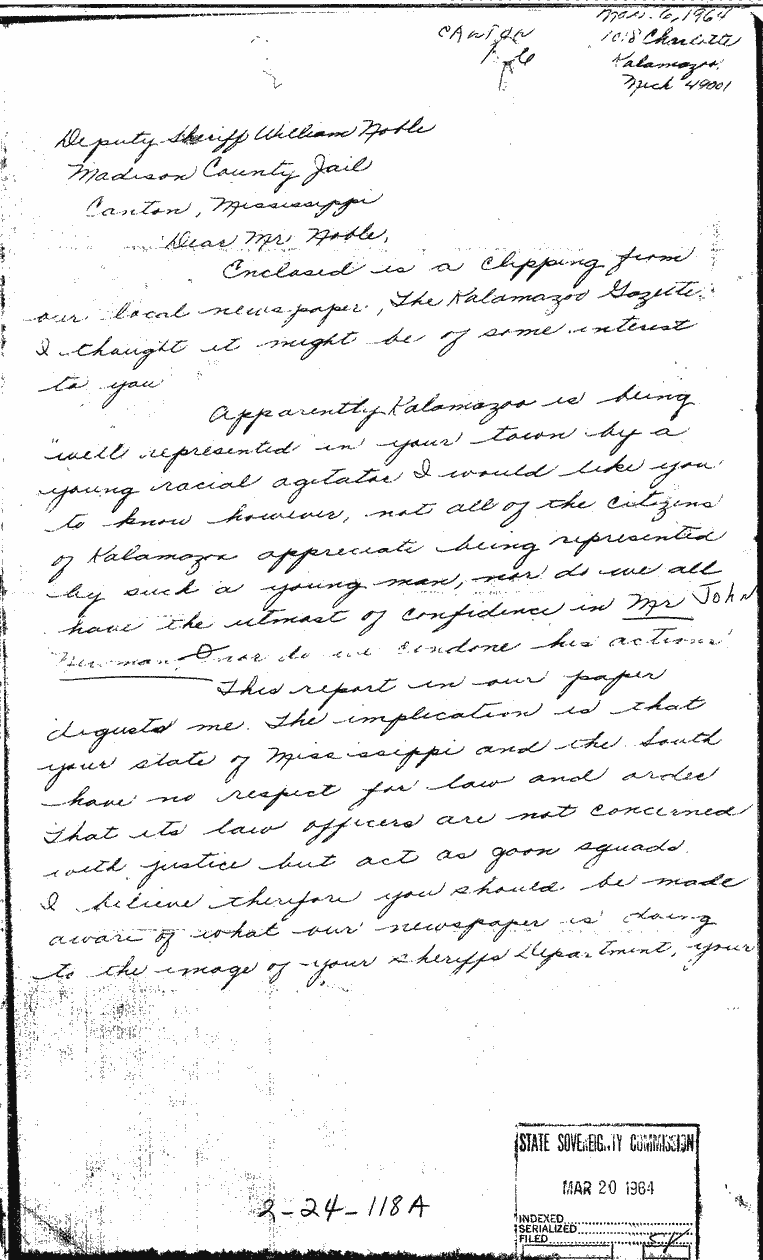 Mar. 6, 1964
CANTON
1018 Charlotte
Kalamazoo,
Mich 49001
Deputy Sheriff William Noble
Madison County Jail
Canton, Mississippi
Dear Mr. Noble,
Enclosed is a clipping from
our local newspaper, The Kalamazoo Gazette.
I thought it might be of some interest
to you
Apparently Kalamazoo is being
"well represented in your town by a
young racial agitator I would like you
to know however, not all of the citizens
of Kalamazoo appreciate being represented
by such a young man, nor do we all
have the utmost of confidence in Mr John
Newman nor do we condone his actions
This report in our paper
disgusts me. The implication is that
your state of Mississippi and the South
have no respect for law and order
That its law officers are not concerned
with justice but act as goon squads.
I believe therefore you should be made
aware of what our newspaper is doing
to the image of your sheriffs Department, your
STATE SOVEREIGNTY COMMISSION
MAR 20 1964
INDEXED
SERIALIZED
FILED
2-24-118A